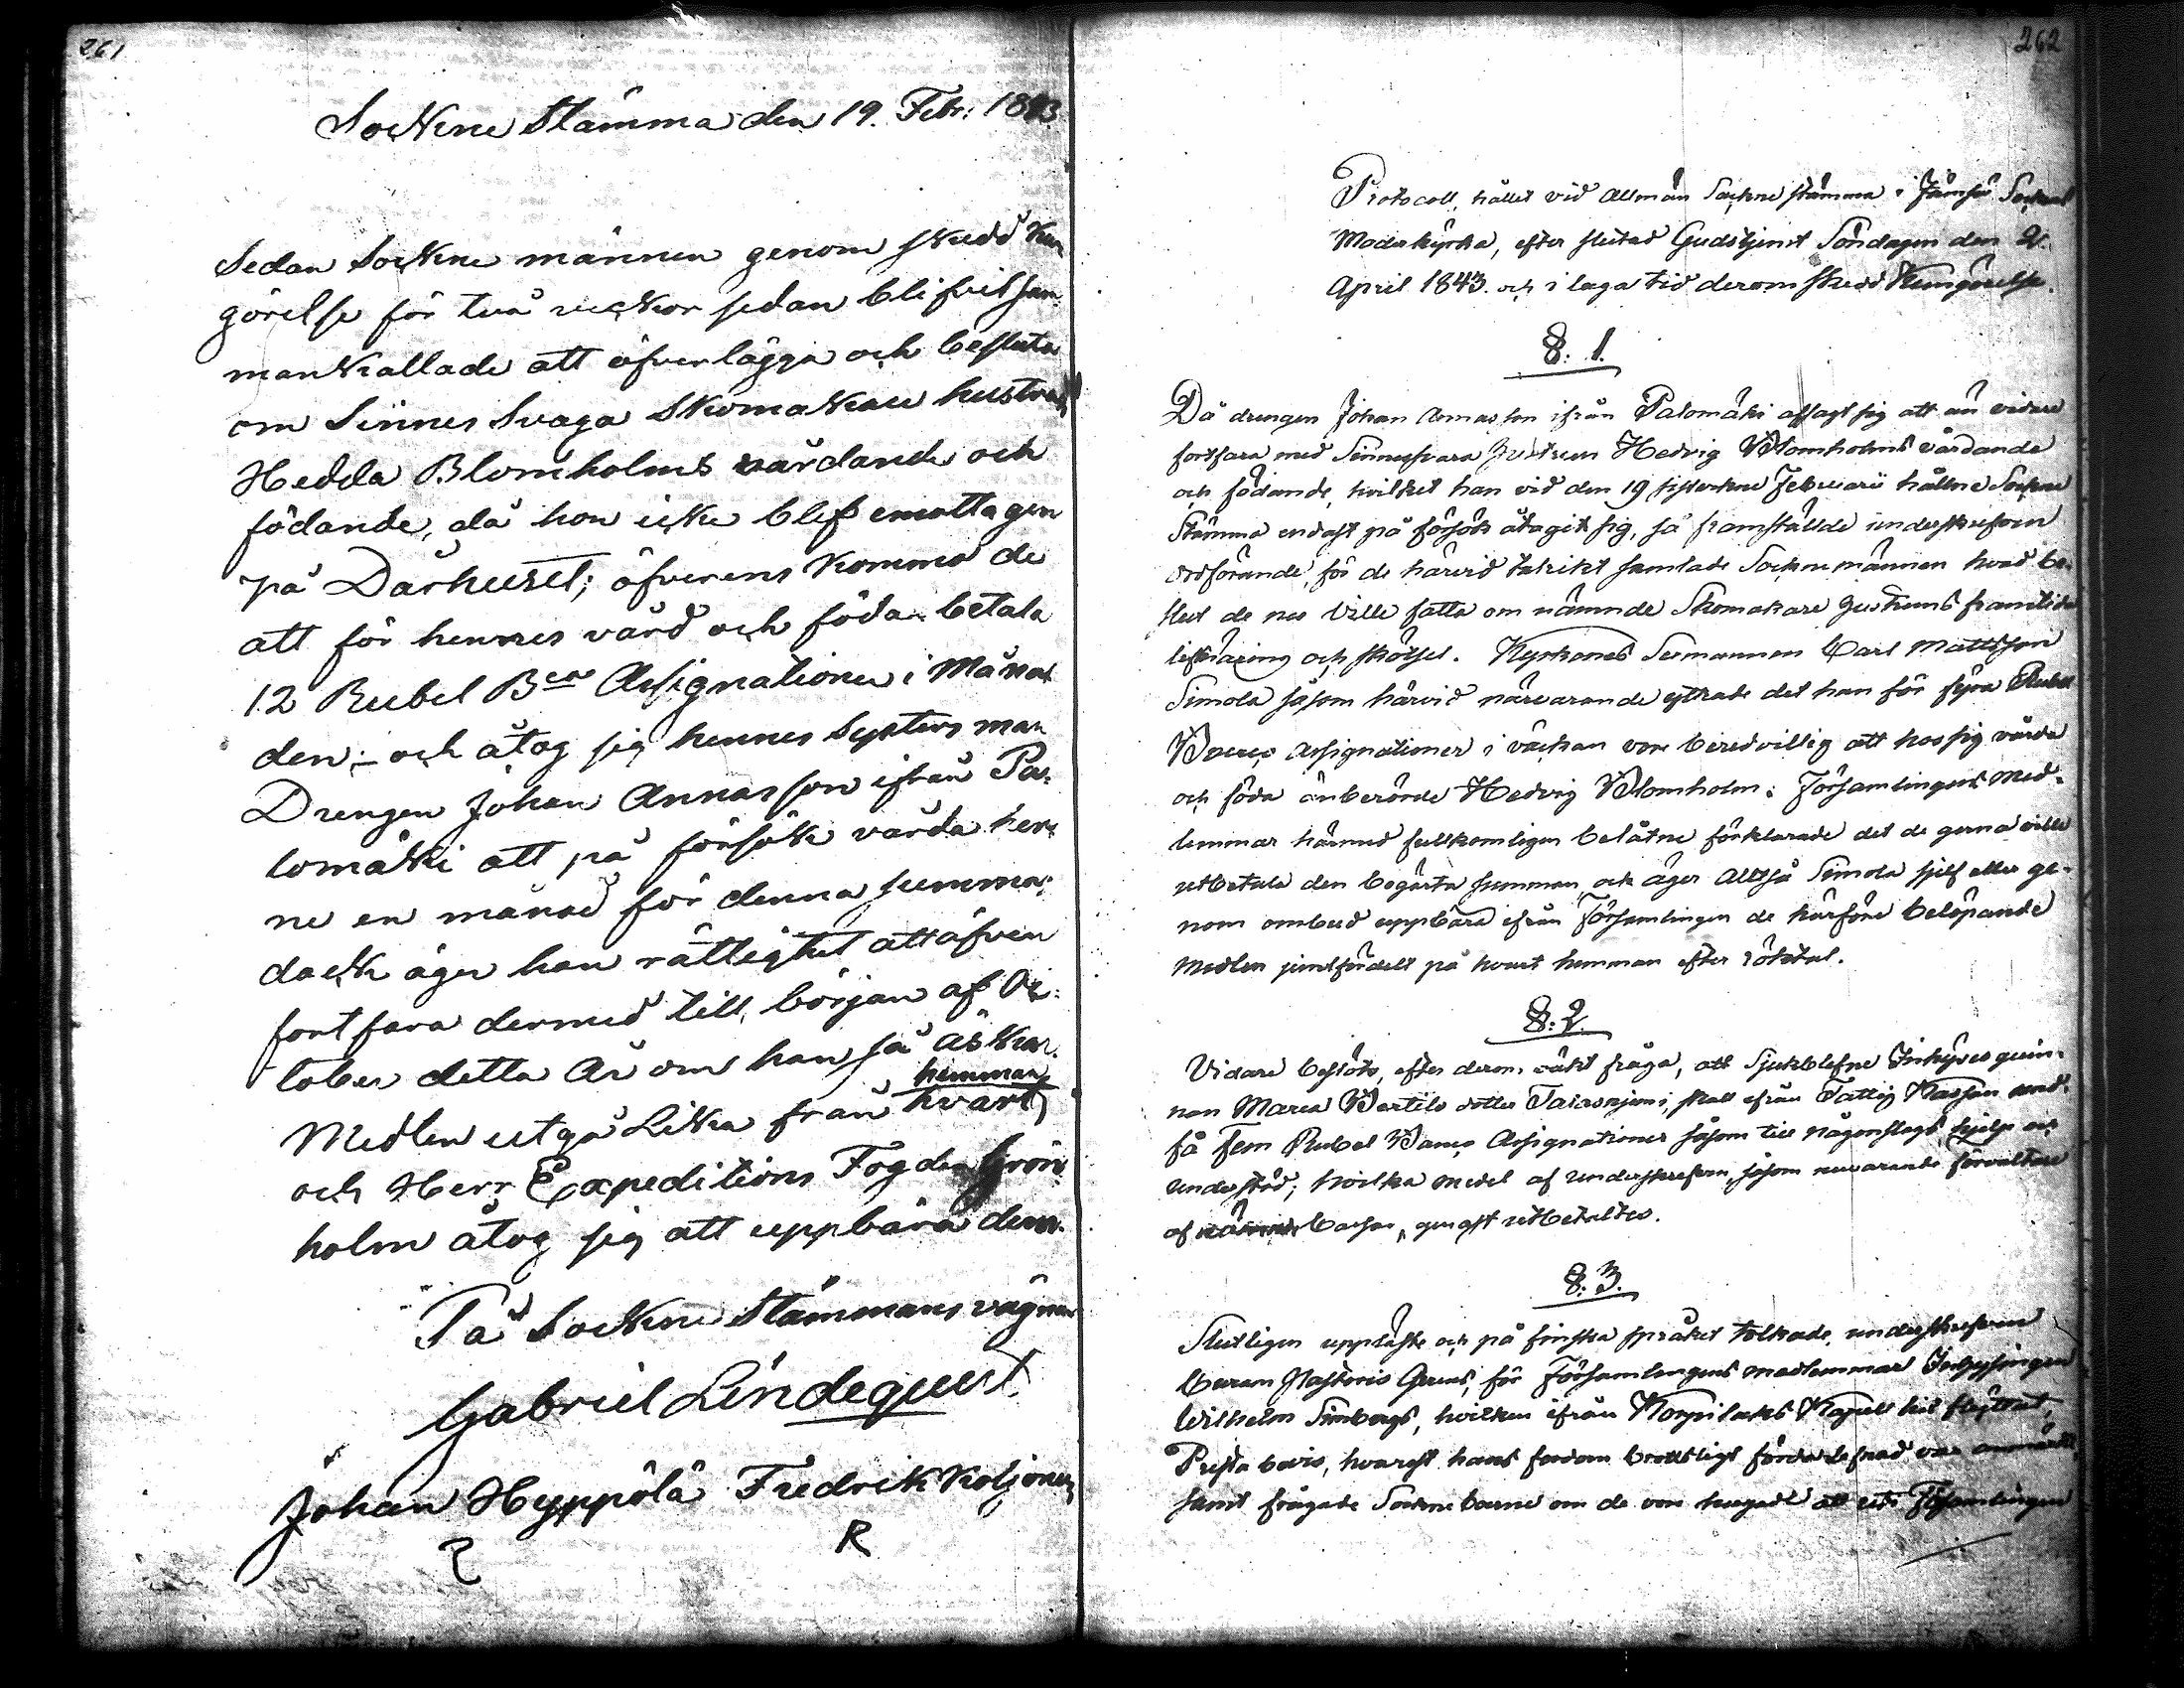 261
Sockne Stämma den 19. Febr: 1843
Sedan Sockne männen genom skedd kun
görelse för två veckor sedan blifvit sam
mankallade att öfverlägga och besluta
om Sinnes Svaga Skomakare hustrun
Hedda Blomholms vårdande och
födande, då hon icke blef emottagen
på Dårhuset; öfverens kommo de
att för hennes vård och föda betala
12 Rubel Bco Assignationer i Måna
den; – och åtog sig hennes Systers man
Drengen Johan Annasson ifrån Pa-
lomäki att på försök vårda hen-
ne en månad för denna summa;
dock äger han rättighet att äfven
fortfara dermed till början af Oc-
tober detta År om han så åstkar.
hemman
Medlen utgå Lika från hvart
och Herr Expeditions Fogden Grön-
holm åtog sig att uppbära dem.
På Sockne Stämmans vägnar
Gabriel Lindequist
Johan Hyppölä Fredrik Koljonen
R
262
Protocoll, hållit vid Allmän Sockne stämma i Jämsä Sockens
Moderkyrka, efter slutad Gudstjenst Söndagen den 2.
April 1843. och i laga tid derom skedd Kungörelse.
§. 1.
Då drengen Johan Annasson ifrån Palomäki afsagt sig att än vidare
fortfara med Sinnessvaga hustrun Hedvig Blomholms vårdande
och födande, hvilket han vid den 19 sistledne Februarii hållne Sockne
Stämma endast på försök åtagit sig, så framställde underskrefven
Ordförande, för de härvid talrikt samlade Sockne männen hvad be-
slut de nu ville fatta om nämnde Skomakare hustrus framtida
lifnäring och skötsel. Kyrkones Sexmannen Carl Mattsson
Simola såsom härvid närvarande yttrade det han för fyra Rubel
Banco Assignationer i veckan vore beredvillig att hos sig vårda
och föda önberörde Hedvig Blomholm. Församlingens Med-
lemmar härmed fullkomligen belåtne förklarade det de gerna ville
utbetala den begärta summan, och äger Alltså Simola sjelf eller ge-
nom ombud uppbära ifrån Församlingen de härföre belöpande
Medlen jemt fördelt på hvart hemman efter röktal.
§: 2.
Vidare beslöts, efter derom väkt fråga, att Sjukblefne Inhyses quin-
nan Maria Bertils dotter Taiasnjemi, skall ifrån Fattig Kassan und-
få Fem Rubel Banco Assignationer såsom till någon slags hjelp och
understöd; hvilka medel af underskrefven, såsom nuvarande förvaltare
af nämnde Cassa, genast utbetaltes.
§: 3.
Slutligen uppläste och på finska språket tolkade, underskrefven
Curam Pastoris Gerens, för Församlingens medlemmar Inhysingen
Wilhelm Simbergs, hvilken ifrån Korpilaks Kapell hit flyttat,
Presta bevis, hvarest hans fordom brottsligt förda lefnad var anmärkt,
samt frågade Sockne barne om de vore hugade att uti Församlingen